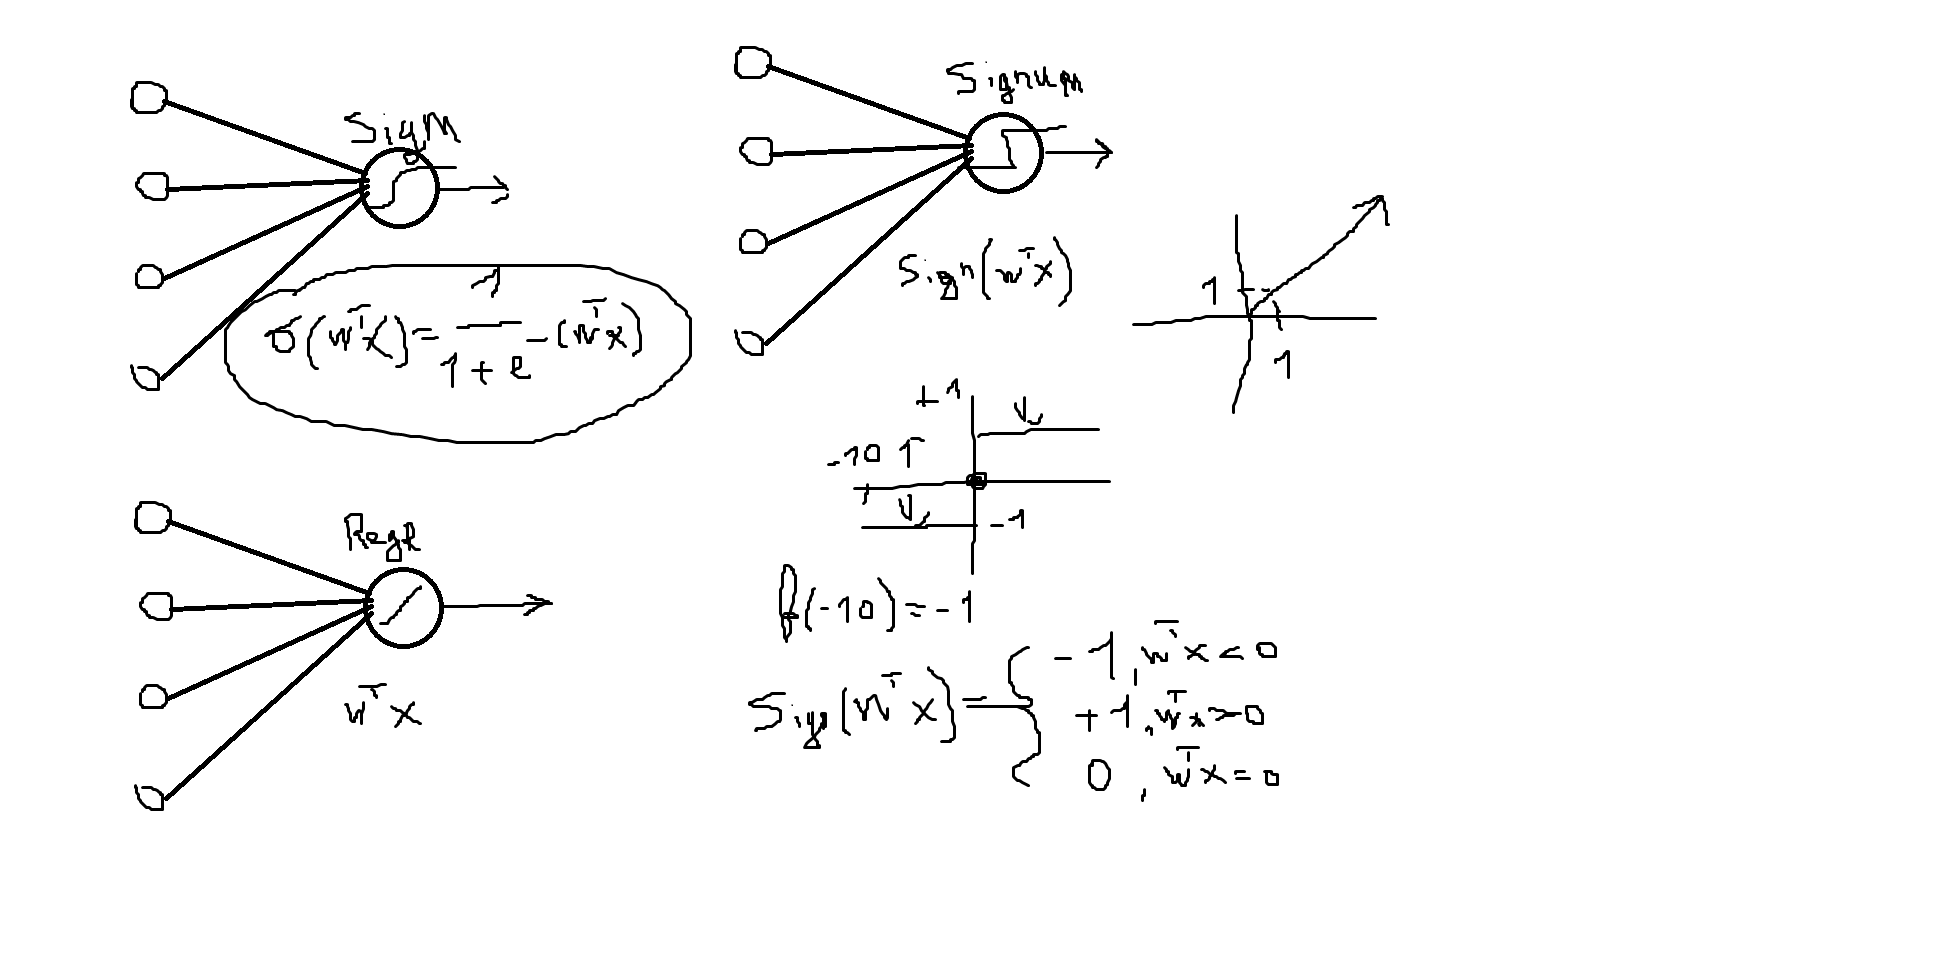 SigM
σ(wᵀx) = 1 / 1 + e -(wᵀx)
Regr
wᵀx
Signum
Sign(wᵀx)
1
1
+1
-10
-1
f(-10) = -1
Sign(wᵀx) = { -1, wᵀx < 0
+1, wᵀx > 0
0, wᵀx = 0